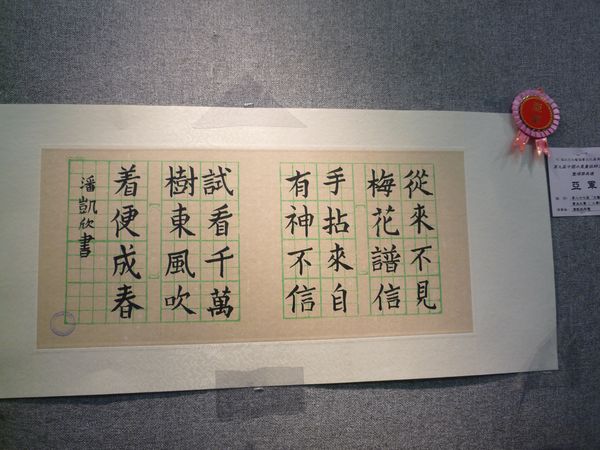 從來不見
梅花譜信
手拈來自
有神不信
試看千萬
樹東風吹
着便成春
潘凱欣書
亞軍